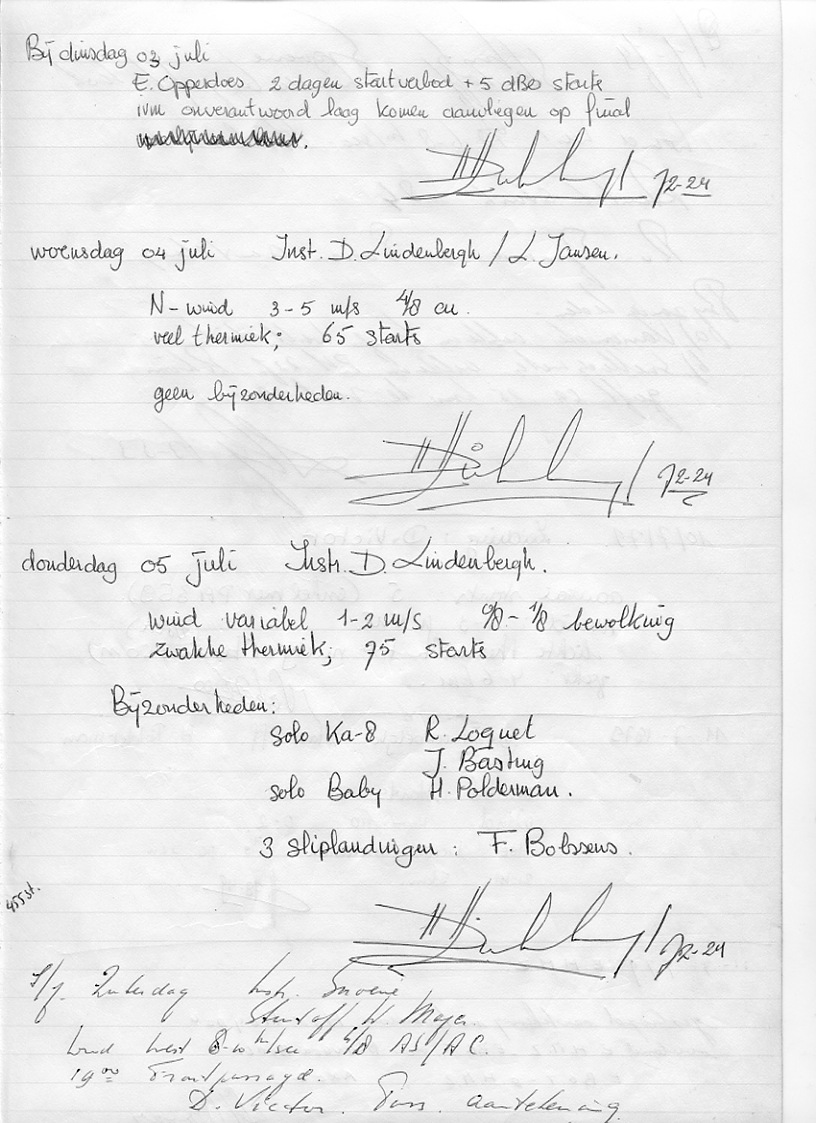 Bij dinsdag 03 juli
E. Opperdoes 2 dagen startverbod + 5 dBo starts
ivm onverantwoord laag komen aanvliegen op final
J2-24
woensdag 04 juli Inst. D. Lindenbergh / L. Jansen.
N-wind 3-5 m/s 4/8 cu.
veel thermiek; 65 starts
geen bijzonderheden.
J2-24
donderdag 05 juli Instr. D. Lindenbergh.
wind variabel 1-2 m/s 0/8 - 1/8 bewolking
zwakke thermiek; 75 starts
Bijzonderheden:
solo Ka-8 R. Loquet
J. Basting
solo Baby H. Polderman.
3 sliplandingen: F. Bolssens.
455 st.
J2-24
7/7 Zaterdag Instr.
W. Meyer.
Wind West 8-10 m/sec 4/8 AS/AC.
19 00 Frontpassage.
D. Victor. aantekening